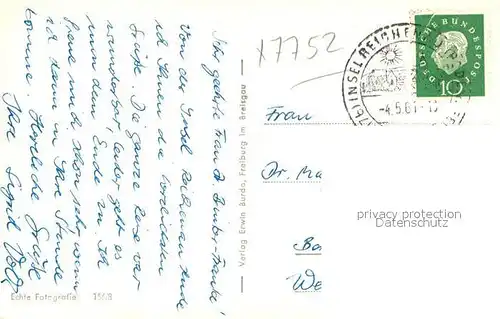 Sehr geehrte Frau Dr.
Von der Insel Reichenau sende
ich Ihnen die herzlichsten
Grüße. Die ganze Reise war
wunderbar, leider geht es
nun dem Ende zu. Ich
freue mich schon sehr wenn
ich dann in Ihre Stunde
komme. Herzliche Grüße
Ihre Sigrid
Echte Fotografie
Verlag Erwin Burda, Freiburg im Breisgau
x7752
INSEL REICHENAU
-4.5.61-
DEUTSCHE BUNDESPOST
10
Frau
Dr. Ma
privacy protection
copyright protection
Ba
We